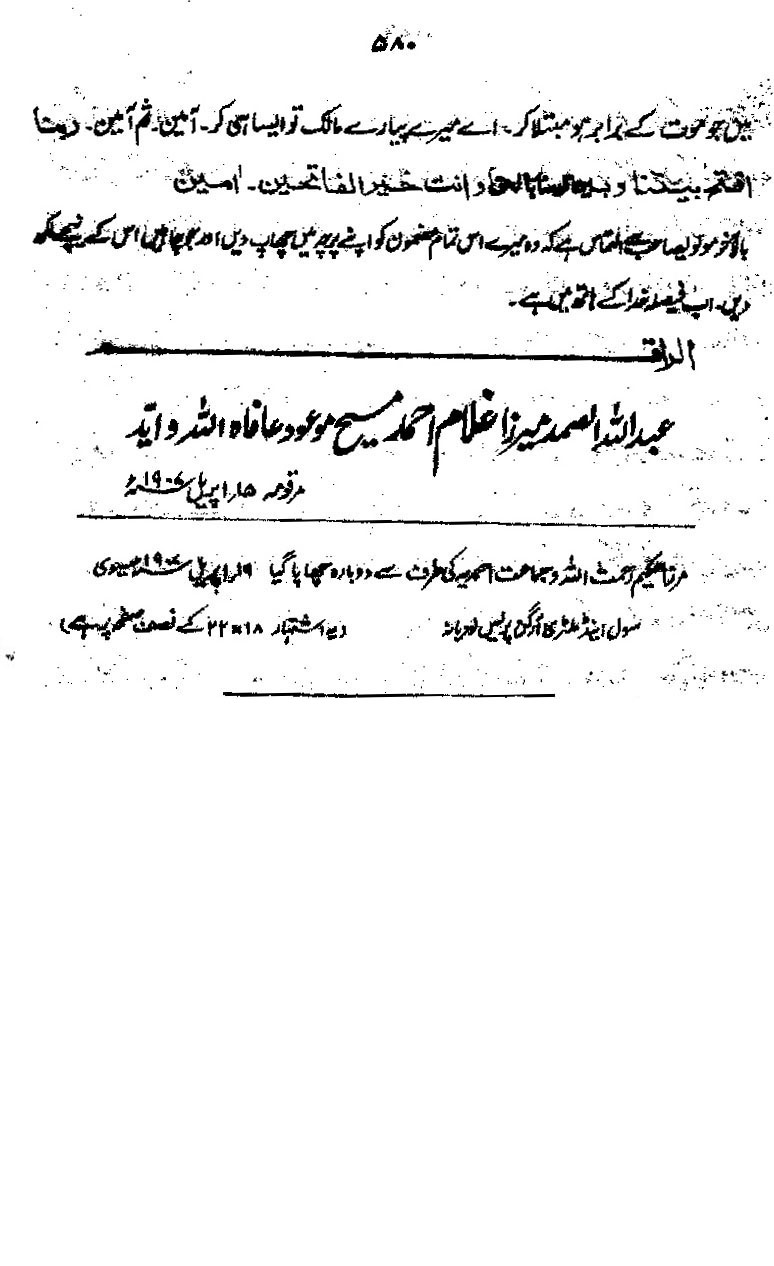 ۵۸۰
میں جو موت کے برابر ہو مبتلا کر۔ اے میرے پیارے مالک تو ایسا ہی کر۔ آمین۔ ثم آمین۔ ربنا
افتح بیننا و بین قومنا بالحق و انت خیر الفاتحین۔ امین
بالآخر مولویصاحب سے التماس ہے کہ وہ میرے اس تمام مضمون کو اپنے پرچہ میں چھاپ دیں اور جو چاہیں اس کے نیچے لکھ
دیں۔ اب فیصلہ خدا کے ہاتھ میں ہے۔
الراقم
عبد اللہ الصمد میرزا غلام احمد مسیح موعود عافاہ اللہ و ایّد
مرقومہ ۱۵ اپریل ۱۹۰۷ء
مرزا حکیم رحمت اللہ و جماعت احمدیہ کی طرف سے دوبارہ چھاپا گیا ۱۹ اپریل ۱۹۰۷ عیسوی
سول اینڈ ملٹری آرگن پریس لودیانہ (یہ اشتہار ۱۸×۲۲ کے نصف صفحہ پر ہے)